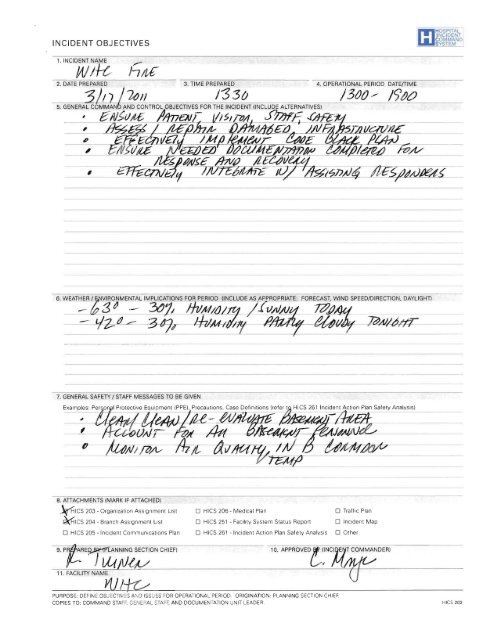 INCIDENT OBJECTIVES
HOSPITAL
INCIDENT
COMMAND
SYSTEM
1. INCIDENT NAME
WHC FIRE
2. DATE PREPARED 3. TIME PREPARED 4. OPERATIONAL PERIOD DATE/TIME
3/17/2011 1330 1300 - 1900
5. GENERAL COMMAND AND CONTROL OBJECTIVES FOR THE INCIDENT (INCLUDE ALTERNATIVES)
• ENSURE PATIENT, VISITOR, STAFF, SAFETY
• ASSESS / REPAIR DAMAGED INFRASTRUCTURE
• EFFECTIVELY IMPLEMENT CODE BLACK PLAN
• ENSURE NEEDED DOCUMENTATION COMPLETED FOR
RESPONSE AND RECOVERY
• EFFECTIVELY INTEGRATE W/ ASSISTING RESPONDERS
6. WEATHER / ENVIRONMENTAL IMPLICATIONS FOR PERIOD (INCLUDE AS APPROPRIATE: FORECAST, WIND SPEED/DIRECTION, DAYLIGHT)
- 63° - 30% HUMIDITY / SUNNY TODAY
- 42° - 30% HUMIDITY PARTLY CLOUDY TONIGHT
7. GENERAL SAFETY / STAFF MESSAGES TO BE GIVEN
Examples: Personal Protective Equipment (PPE), Precautions, Case Definitions (refer to HICS 261 Incident Action Plan Safety Analysis)
• CLEAN / RE-EVALUATE BASEMENT AREA
• ACCOUNT FOR ALL BASEMENT PERSONNEL
• MONITOR AIR QUALITY, IN B CORRIDOR
TEMP
8. ATTACHMENTS (MARK IF ATTACHED)
HICS 203 - Organization Assignment List □ HICS 206 - Medical Plan □ Traffic Plan
HICS 204 - Branch Assignment List □ HICS 251 - Facility System Status Report □ Incident Map
□ HICS 205 - Incident Communications Plan □ HICS 261 - Incident Action Plan Safety Analysis □ Other
9. PREPARED BY (PLANNING SECTION CHIEF) 10. APPROVED BY (INCIDENT COMMANDER)
R. Turner C.
11. FACILITY NAME
WHC
PURPOSE: DEFINE OBJECTIVES AND ISSUES FOR OPERATIONAL PERIOD. ORIGINATION: PLANNING SECTION CHIEF.
COPIES TO: COMMAND STAFF, GENERAL STAFF, AND DOCUMENTATION UNIT LEADER. HICS 202